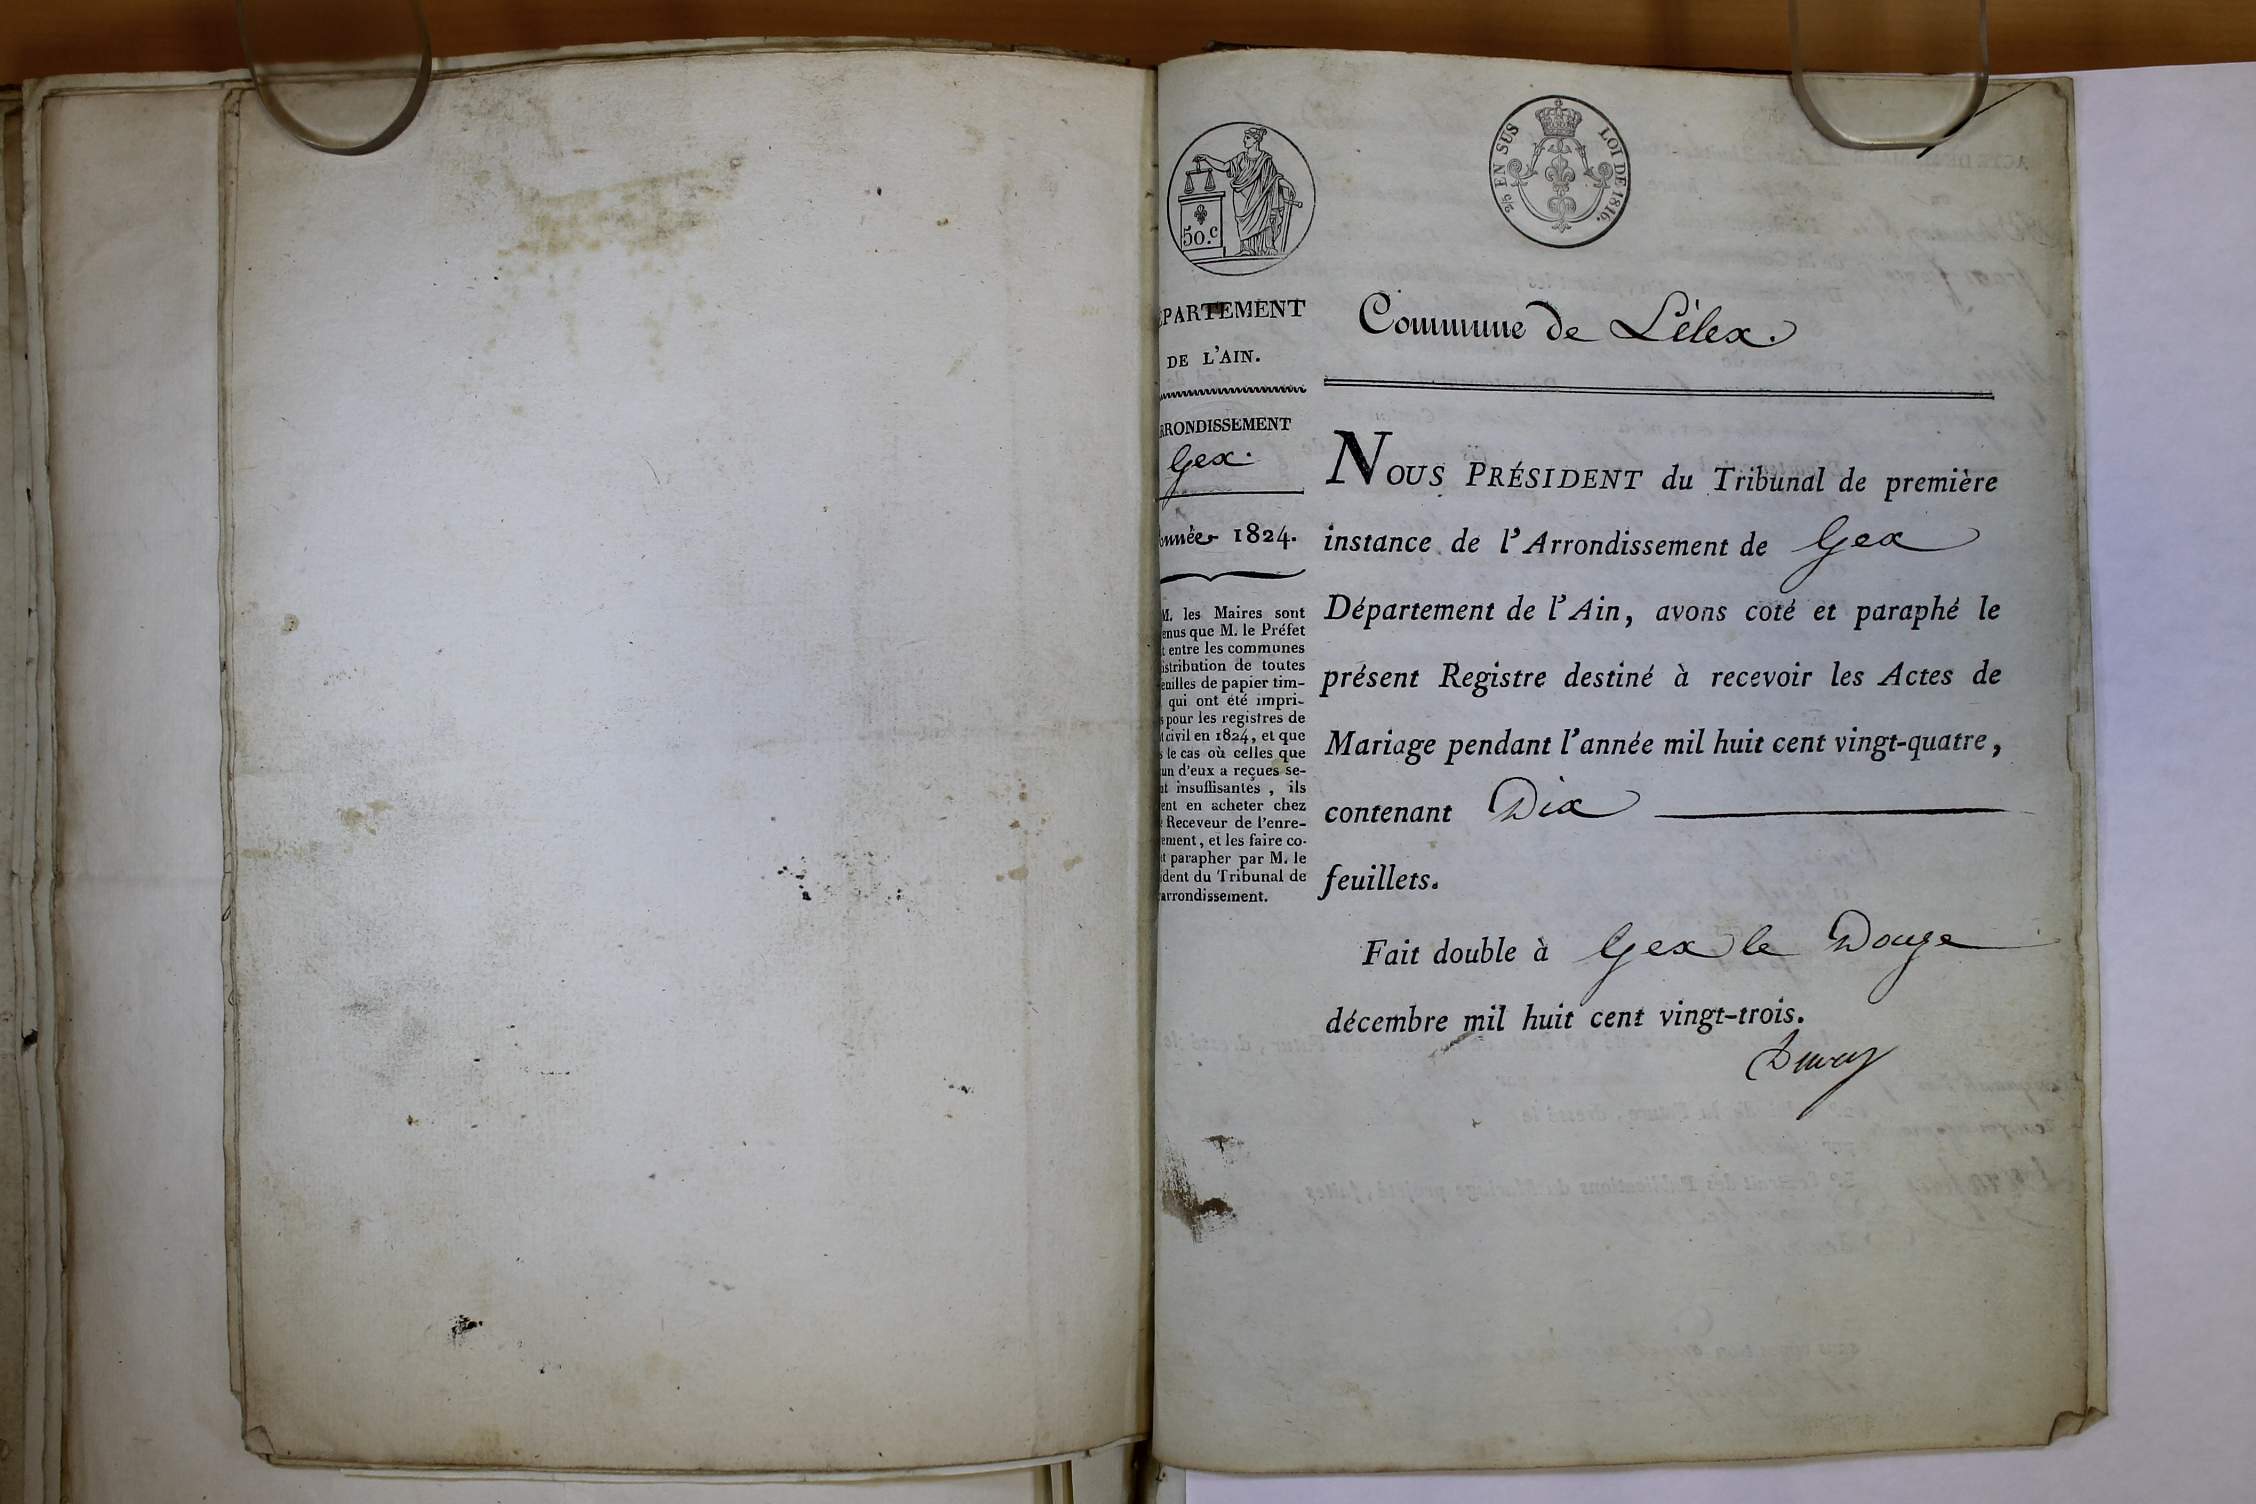 50.c
2/5 EN SUS LOI DE 1816.
EPARTEMENT
DE L'AIN.
RRONDISSEMENT
Gex.
nnée 1824.
M. les Maires sont
enus que M. le Préfet
t entre les communes
istribution de toutes
euilles de papier tim-
qui ont été impri-
s pour les registres de
t civil en 1824, et que
s le cas où celles que
un d'eux a reçues se-
nt insuffisantes, ils
ent en acheter chez
e Receveur de l'enre-
ement, et les faire co-
t parapher par M. le
ident du Tribunal de
arrondissement.
Commune de Lélex.
NOUS PRÉSIDENT du Tribunal de première
instance de l'Arrondissement de Gex
Département de l'Ain, avons coté et paraphé le
présent Registre destiné à recevoir les Actes de
Mariage pendant l'année mil huit cent vingt-quatre,
contenant Dix
feuillets.
Fait double à Gex le Douze
décembre mil huit cent vingt-trois.